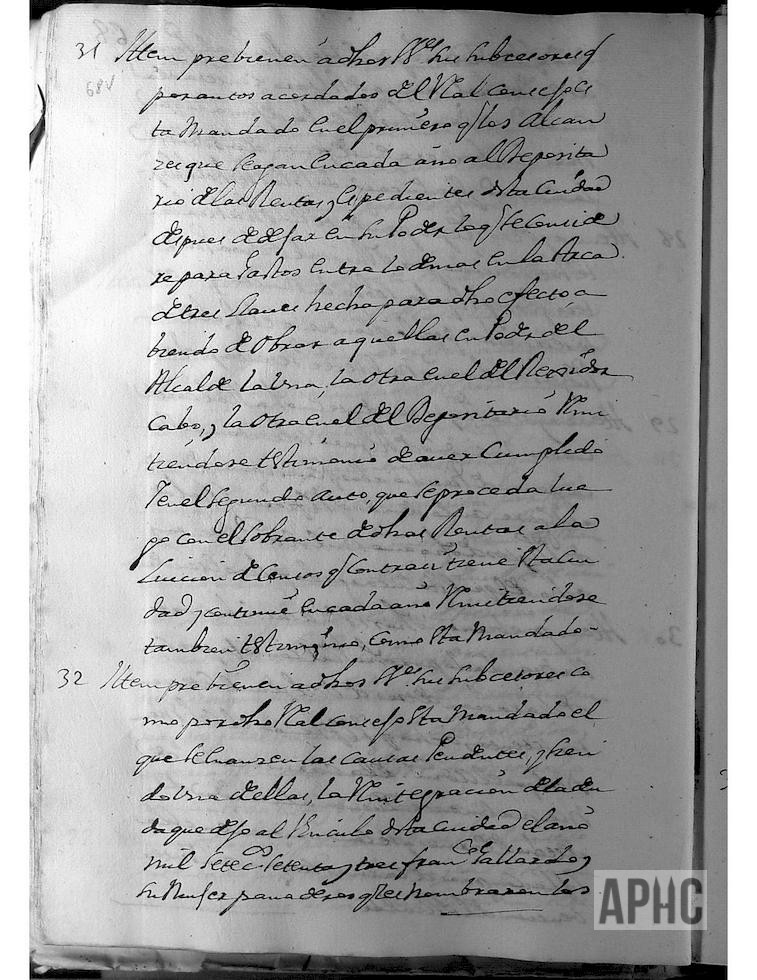 31 Ittem prebienen a dhos SSres sus subcesores q
68v
por autos acordados del Rl consejo es
ta Mandado en el primero q los Alcan
zes que se agan en cada año al Deposita
rio de las Rentas, y espedientes desta Ciudad
despues de dejar en su Poder lo q se conside
re para gastos entre lo demas en la Arca
de tres llaves hecha para dho efecto a
biendo de obrar aquellas en Poder del
Alcalde la una, la otra en el del Regidor
Cabo, y la otra en el del Depositario Remi
tiendose testimonio de aver Cumplido
Y en el segundo auto, que se proceda lue
go con el sobrante de dhas Rentas a la
Luicion de Censos q contra si tiene esta Ciu
dad, y continue en cada año Remitiendose
tambien testimonio, como esta Mandado-
32 Ittem prebienen a dhos SSres sus subcesores co
mo por dho Rl consejo esta Mandado el
que se abanzen las causas Pendientes, y sien
do una de ellas, la Reintegracion de la deu
da que dejo al Vinculo desta Ciudad el año
mil setecos setenta y tres Franco Gallardo, y
su Muger panaderos q les nombraron los
APHC